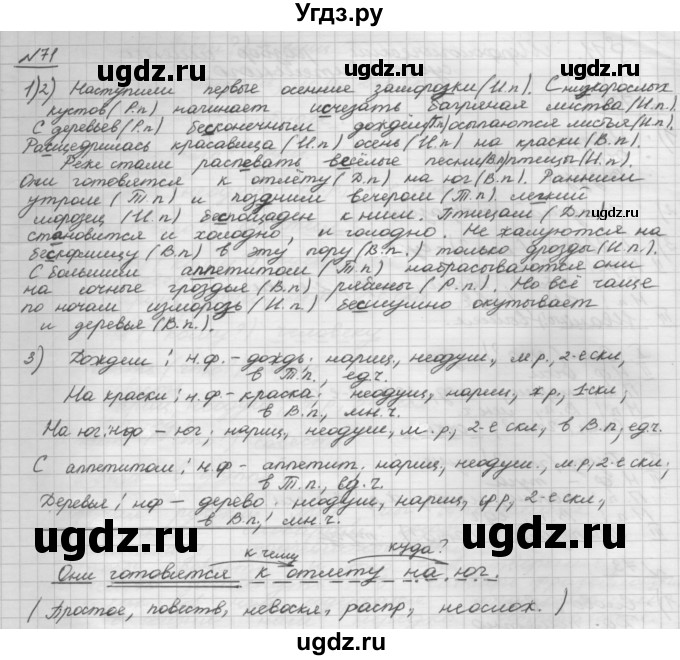 Угдз.ру
№71
1)2) Наступили первые осенние заморозки (И.п). С низкорослых
кустов (Р.п) начинает исчезать багряная листва (И.п).
С деревьев (Р.п) бесконечным дождём (Тп) осыпаются листья (И.п).
Расщедрилась красавица (И.п) осень (И.п) на краски (В.п).
Реже стали распевать весёлые песни (Вп) птицы (И.п).
Они готовятся к отлёту (Д.п) на юг (В.п). Ранним
утром (Т.п) и поздним вечером (Т.п) легкий
морозец (И.п) беспощаден к ним. Птицам (Д.п)
становится и холодно, и голодно. Не жалуются на
бескормицу (В.п) в эту пору (В.п.) только дрозды (И.п).
С большим аппетитом (Т.п) набрасываются они
на сочные гроздья (В.п) рябины (Р.п). Но всё чаще
по ночам изморозь (И.п) бесшумно окутывает
и деревья (В.п.).
3) Дождем: н.ф. – дождь; нариц, неодуш, м.р., 2-е скл,
в Т.п., ед.ч.
На краски: н.ф – краска; неодуш, нариц, ж.р., 1 скл;
в В.п., мн.ч.
На юг: нф – юг; нариц, неодуш, м.р, 2-е скл, в В.п, ед.ч.
С аппетитом: н.ф – аппетит. нариц, неодуш., м.р, 2-е скл,
в Т.п., ед.ч.
Деревья: нф – дерево. неодуш, нариц, ср р, 2-е скл,
в В.п, мн.ч.
к чему куда?
Они готовятся к отлету на юг.
(Простое, повеств, невоскл, распр, неослож.)
ugdz.ru
ugdz.ru
ugdz.ru
ugdz.ru
ugdz.ru
ugdz.ru
ugdz.ru
ugdz.ru
ugdz.ru
ugdz.ru
ugdz.ru
ugdz.ru
ugdz.ru
ugdz.ru